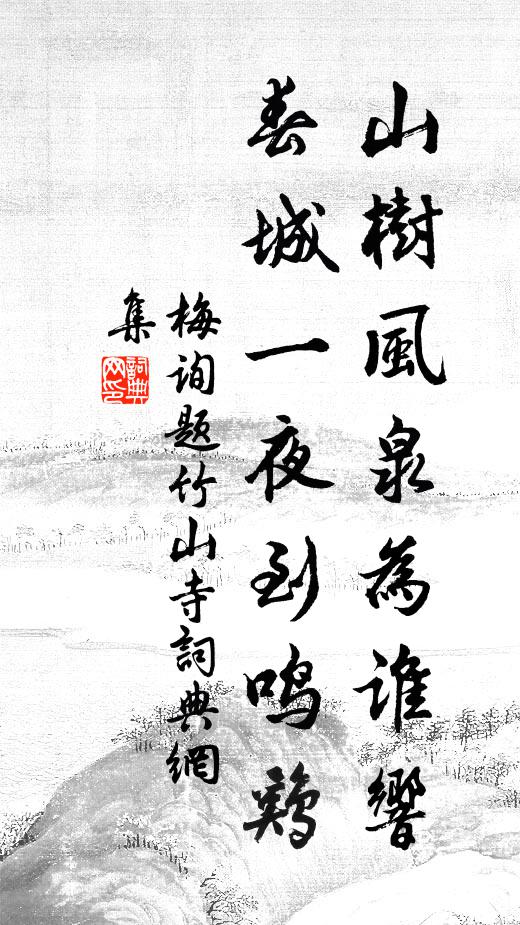 山樹風泉為誰響
春城一夜到鳴鷄
梅詢題竹山寺詞典網
集
詞典
网印